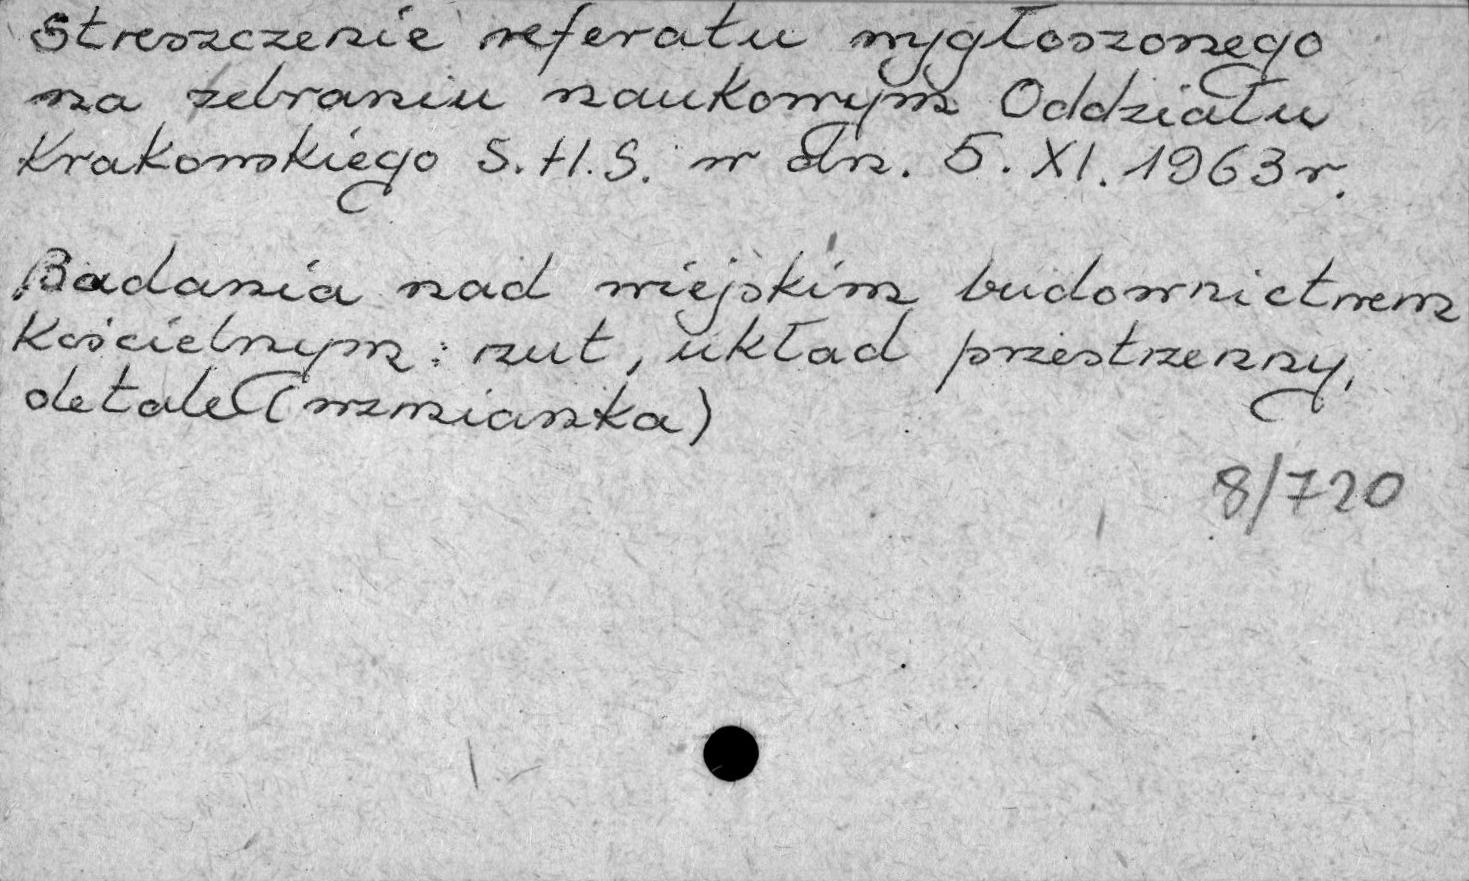 Streszczenie referatu wygłoszonego
na zebraniu naukowym Oddziału
Krakowskiego S.H.S. w dn. 5. XI. 1963 r.
Badania nad wiejskim budownictwem
kościelnym: rzut, układ przestrzenny,
detale (wzmianka)
8/720